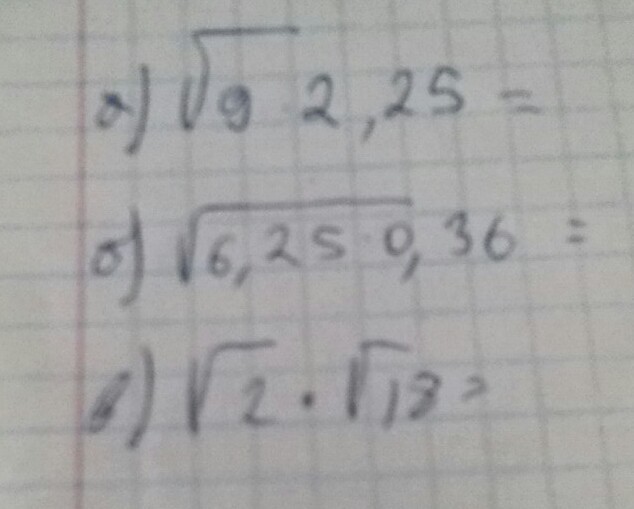 а) √9 2,25 =
б) √6,25·0,36 =
в) √2 · √18 =